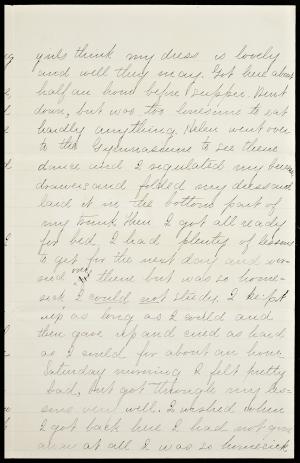 girls think my dress is lovely
and well they may. Got here about
half an hour before supper. Went
down, but was too lonesome to eat
hardly anything. Helen went over
to the Gymnasium to see them
dance and I regulated my bureau
drawers and folded my dress and
laid it in the bottom part of
my trunk then I got all ready
for bed, I had plenty of lessons
to get for the next day and wor-
ried over them but was so home-
sick I could not study. I kept
up as long as I could and
then gave up and cried as hard
as I could for about an hour.
Saturday morning I felt pretty
bad, but got through my les-
sons very well. I washed when
I got back here I had not gone
down at all I was so homesick